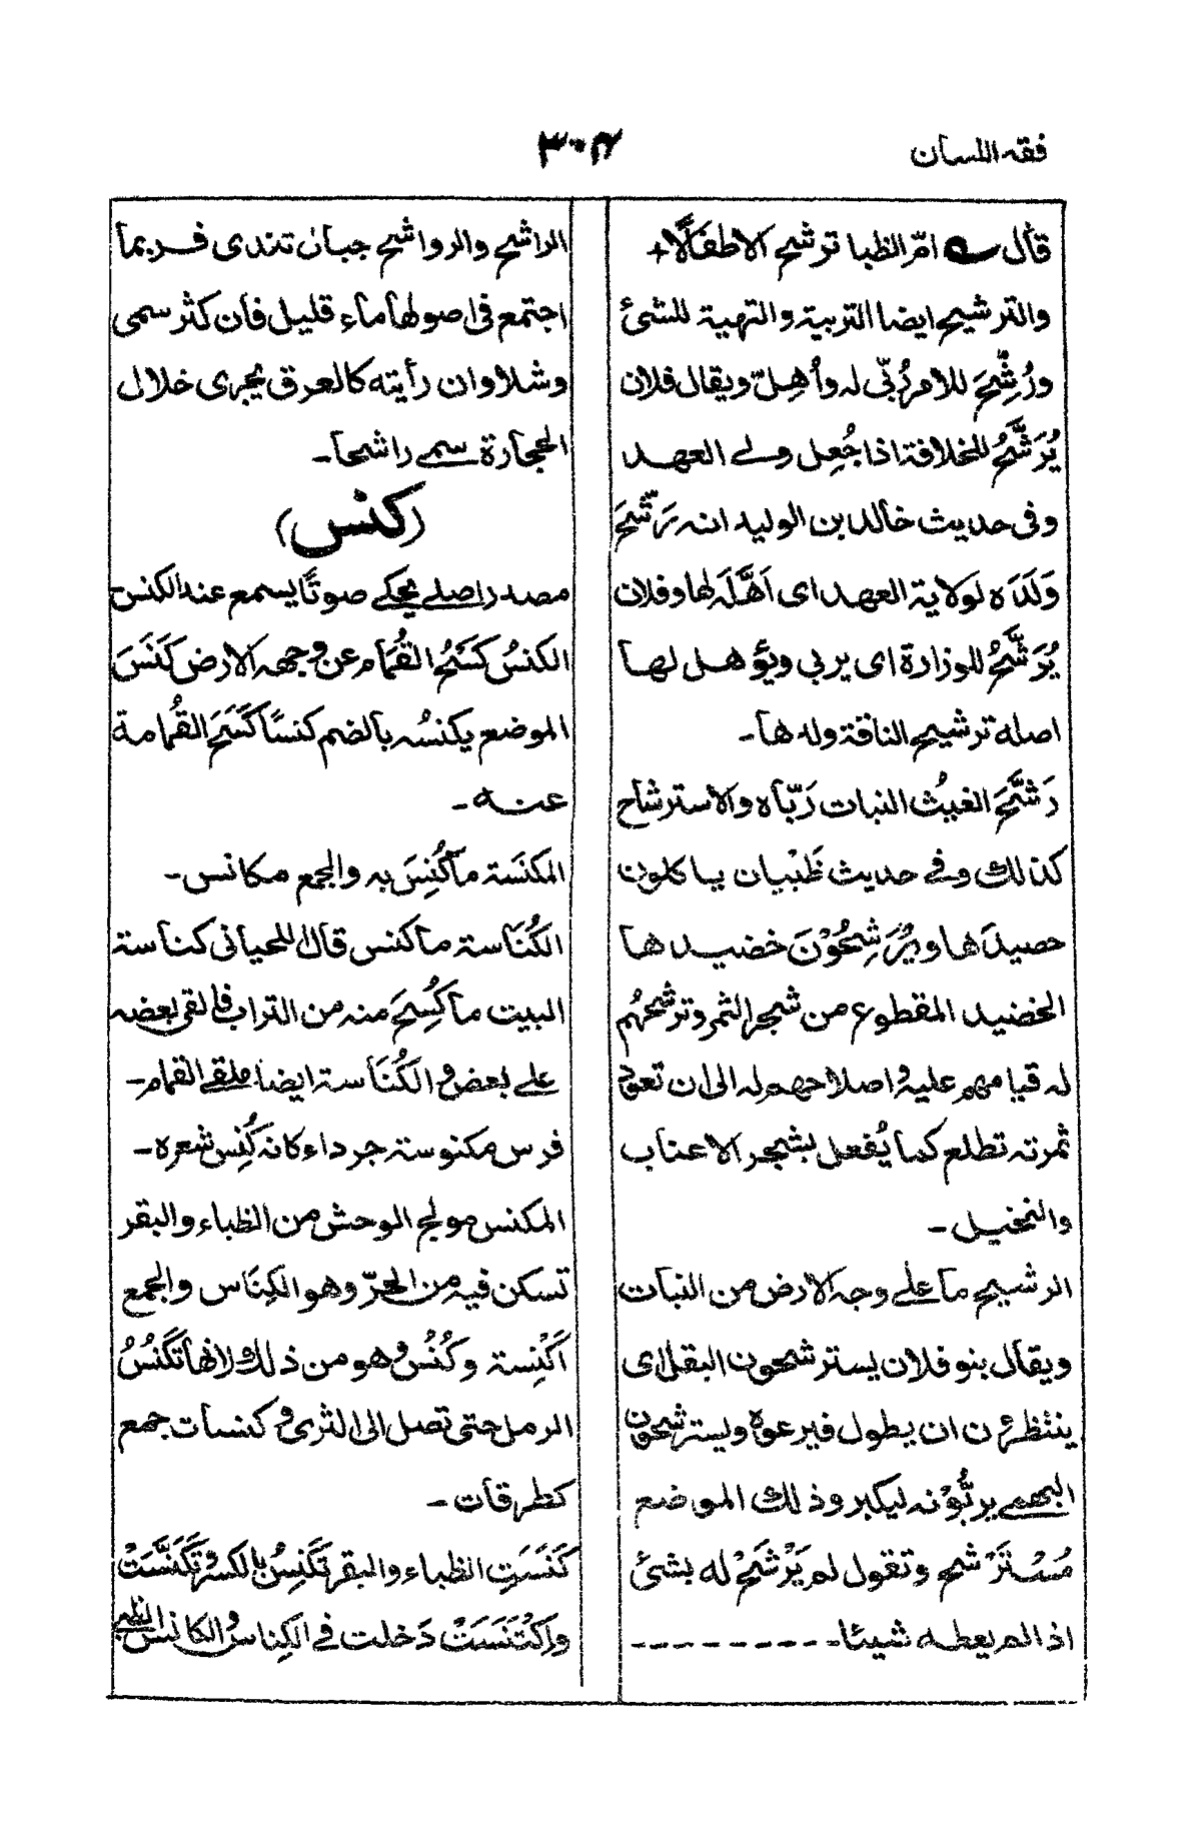 فقه اللسان
٣٠٤
قال ؎ امّ الظبا ترشح الاطفالا+
والترشيح ايضا التربية والتهية للشئ
ورُشِّحَ للامر رُبّى له وأُهِلّ ويقال فلان
يُرَشَّحُ للخلافة اذا جُعِل ولے العهد
وفى حديث خالد بن الوليد انه رَشَّحَ
وَلَدَه لولاية العهد اى اَهَّلَه لها وفلان
يُرَشَّحُ للوزارة اى يربى ويؤهل لها
اصله ترشيح الناقة ولدها۔
رَشَّحَ الغيثُ النبات رَبّاه والاسترشاح
كذالك وفے حديث ظَبْيان ياكلون
حصيدَها ويُرَشِحُوْنَ خضيدها
الخضيد المقطوع من شجر الثمر وترشحهُم
له قيامهم عليه واصلاحهم له الى ان تعود
ثمرته تطلع كما يُفعل بشجر الاعناب
والنخيل۔
الرشيح ما علے وجه الارض من النبات
ويقال بنو فلان يسترشحون البقل اى
ينتظرون ان يطول فيرعوه ويسترشحون
البهمے يربُّوْنه ليكبر وذلك الموضع
مُسْتَرْشح وتقول لم يَرْشَحْ له بشئ
اذا لم يعطه شيئا۔ - - - - - - - - -
الراشح والرواشح جبان تندى فربما
اجتمع فى اصولها ماء قليل فان كثر سمى
وشلا وان رأيته كالعرق يجرى خلال
الحجارة سمے راشحا۔
(كنس)
مصدر اصلے يحكے صوتًا يسمع عند الكنس
الكنسُ كَسْحُ القُمَام عن وجهه الارض كَنَسَ
الموضع يكنسُه بالضم كنسًا كَسَحَ القُمامة
عنه۔
المكنَسَة ما كُنِسَ به والجمع مكانس۔
الكُنَاسة ما كنس قال اللحيانى كناسة
البيت ما كُسِحَ منه من التراب فالقى بعضه
علے بعض والكُنَاسة ايضا ملقے القمام۔
فرس مكنوسة جرداء كانه كُنِس شعره۔
المكنس مولج الوحش من الظباء والبقر
تسكن فيه من الحرّ وهو الكِنَاس والجمع
اَكْنِسة وكُنُس وهو من ذلك لانها تَكْنُسُ
الرمل حتى تصل الى الثرى وكنسات جمع
كطرقات۔
كَنَسَتِ الظباء والبقر تَكْنِسُ بالكسر وتَكَنَّسَتْ
واكْتَنَسَتْ دَخلت فے الكِناس والكانس الظبى